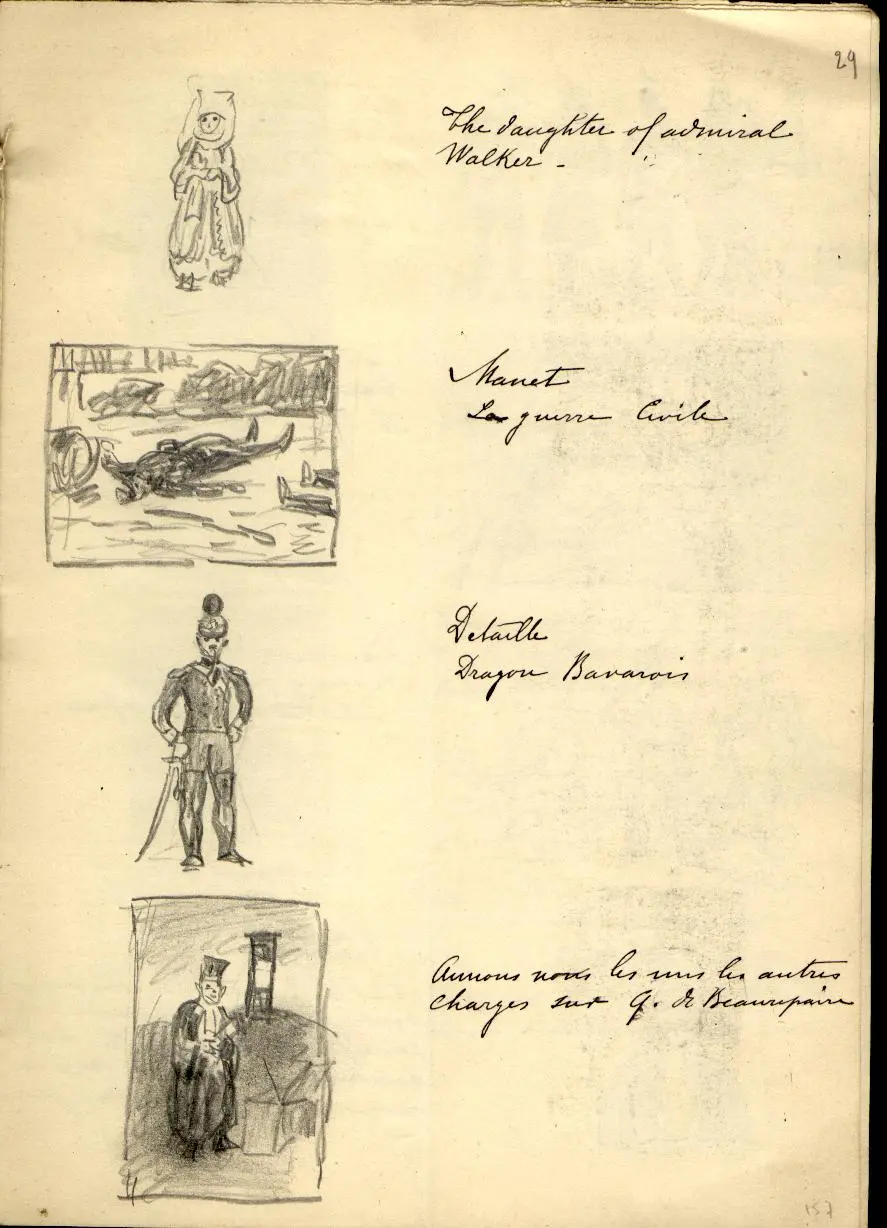 29
The daughter of admiral
Walker -
Manet
La guerre Civile
Detaille
Dragon Bavarois
Aimons nous les uns les autres
Charges sur Q. de Beaurepaire
157